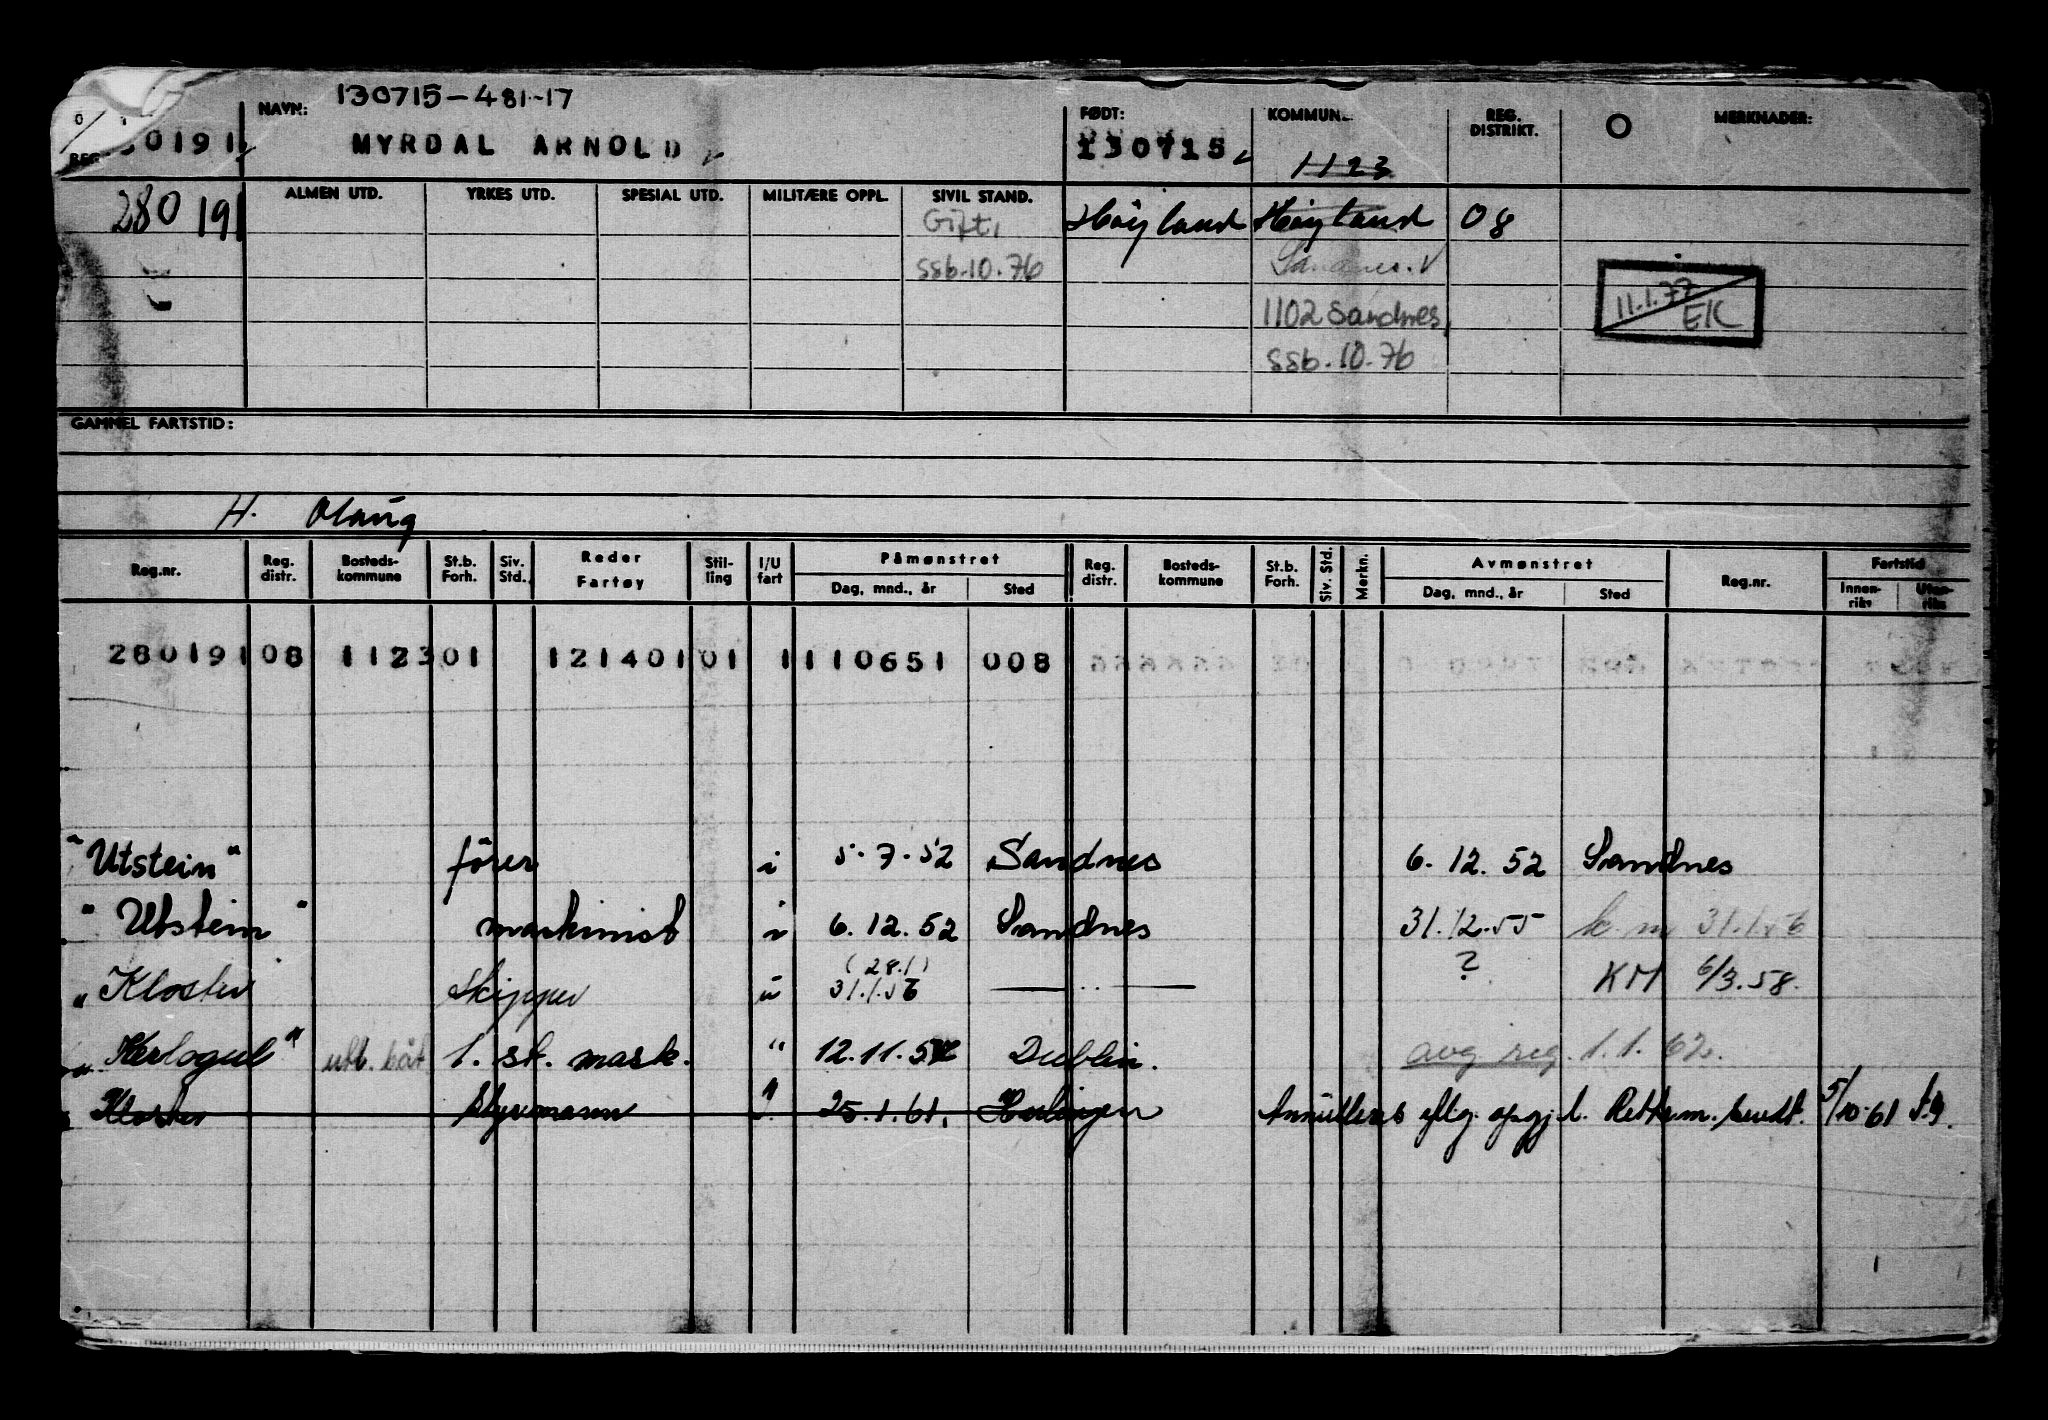 130715-481-17
NAVN: MYRDAL ARNOLD
FØDT: 130715
KOMMUN
1123
REG. DISTRIKT.
MERKNADER:
0191
280191
ALMEN UTD. YRKES UTD. SPESIAL UTD. MILITÆRE OPPL. SIVIL STAND.
Gift,
ssb.10.76
Høyland Høyland 08
Sandnes.
1102 Sandnes,
ssb.10.76
11.1.77
EK
GAMMEL FARTSTID:
H. Olaug
Reg.nr. Reg. distr. Bosteds-kommune St.b. Forh. Siv. Std. Reder Fartøy Stil-ling I/U fart Påmønstret Dag, mnd., år Sted Reg. distr. Bosteds-kommune St.b. Forh. Siv. Std. Merkn. Avmønstret Dag, mnd., år Sted Reg.nr. Fartstid Innen-riks Uten-riks
280191 08 1123 01 121401 01 1 110651 008
"Utstein" fører i 5.7.52 Sandnes 6.12.52 Sandnes
"Utstein" maskinist i 6.12.52 Sandnes 31.12.55 k.m 31.1.56
(28.1)
"Kloster skipper u 31.1.56 —〃— ? KM 6/3.58.
"Kerlogue" utl. båt 1. sk. mask. " 12.11.57 Dublin. avg. reg. 1.1.62.
Kloster styrmann 25.1.61. Annulleres iflg. oppgj. f. 5/10-61